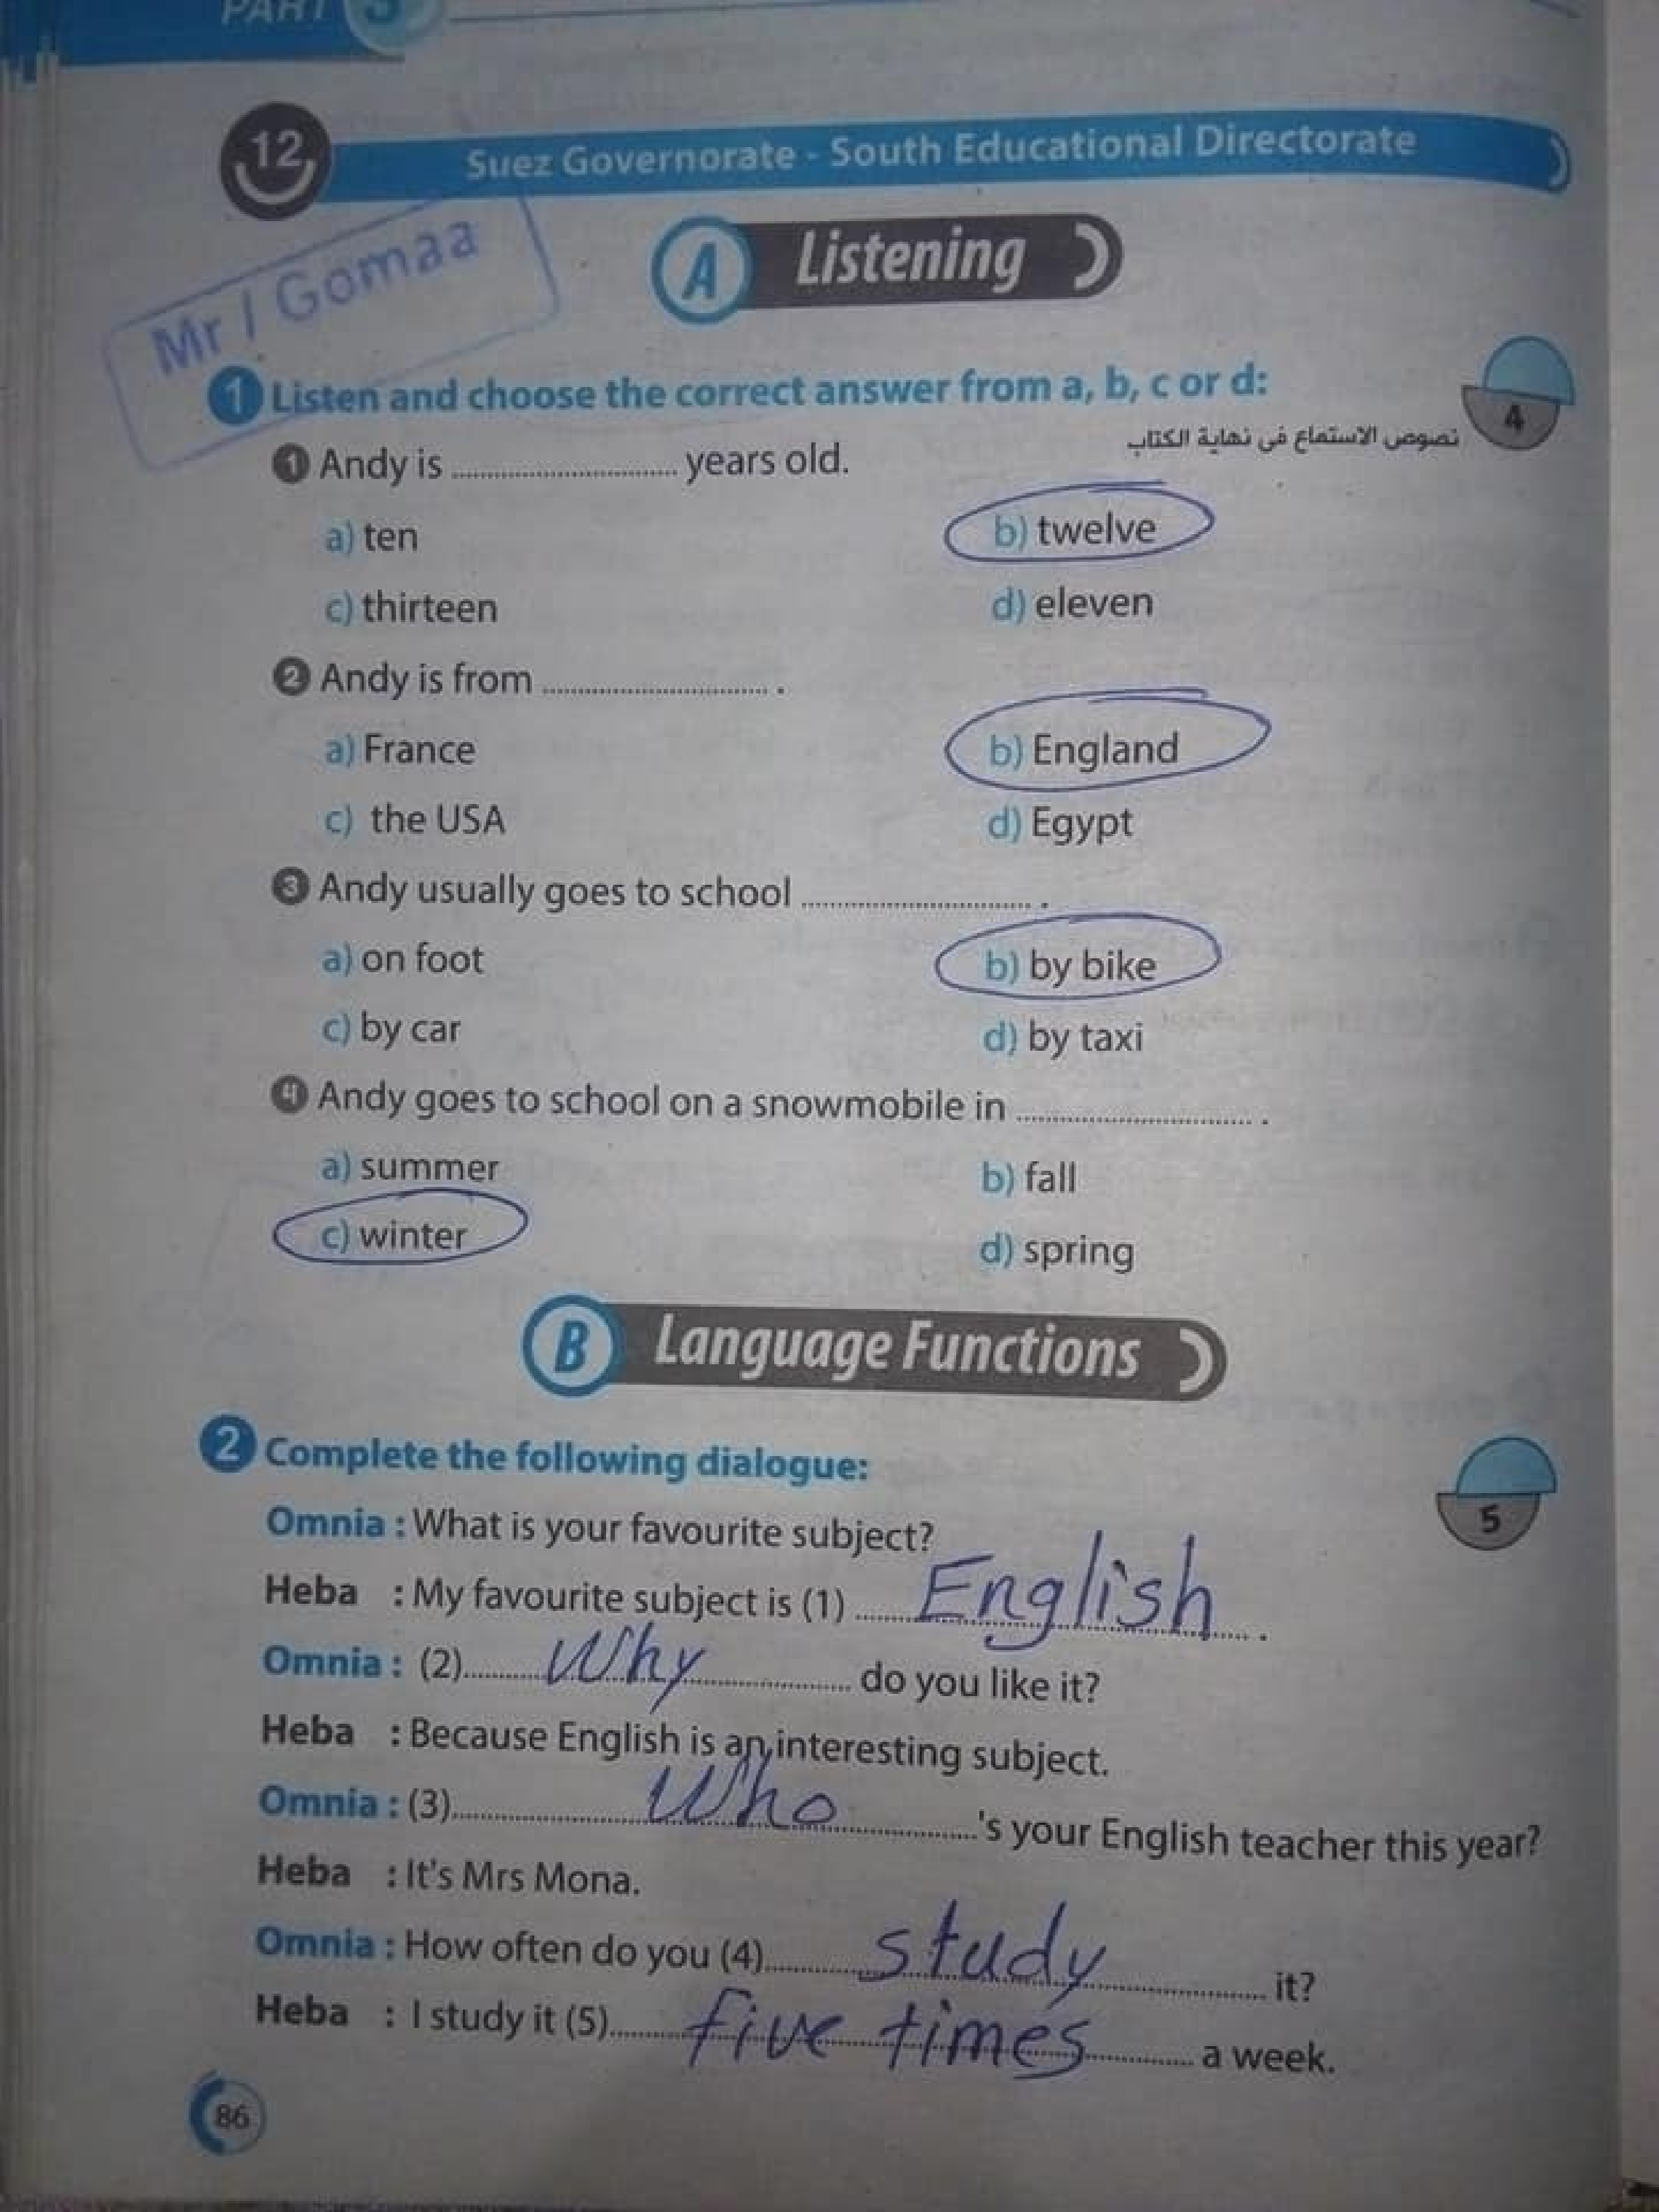 PART 3
12
Suez Governorate - South Educational Directorate
Mr / Gomaa
A Listening
1 Listen and choose the correct answer from a, b, c or d:
4
نصوص الاستماع فى نهاية الكتاب
1 Andy is .............................. years old.
a) ten b) twelve
c) thirteen d) eleven
2 Andy is from .............................. .
a) France b) England
c) the USA d) Egypt
3 Andy usually goes to school .............................. .
a) on foot b) by bike
c) by car d) by taxi
4 Andy goes to school on a snowmobile in .............................. .
a) summer b) fall
c) winter d) spring
B Language Functions
2 Complete the following dialogue:
5
Omnia : What is your favourite subject?
Heba : My favourite subject is (1) English .
Omnia : (2) Why do you like it?
Heba : Because English is an interesting subject.
Omnia : (3) Who 's your English teacher this year?
Heba : It's Mrs Mona.
Omnia : How often do you (4) study it?
Heba : I study it (5) five times a week.
86